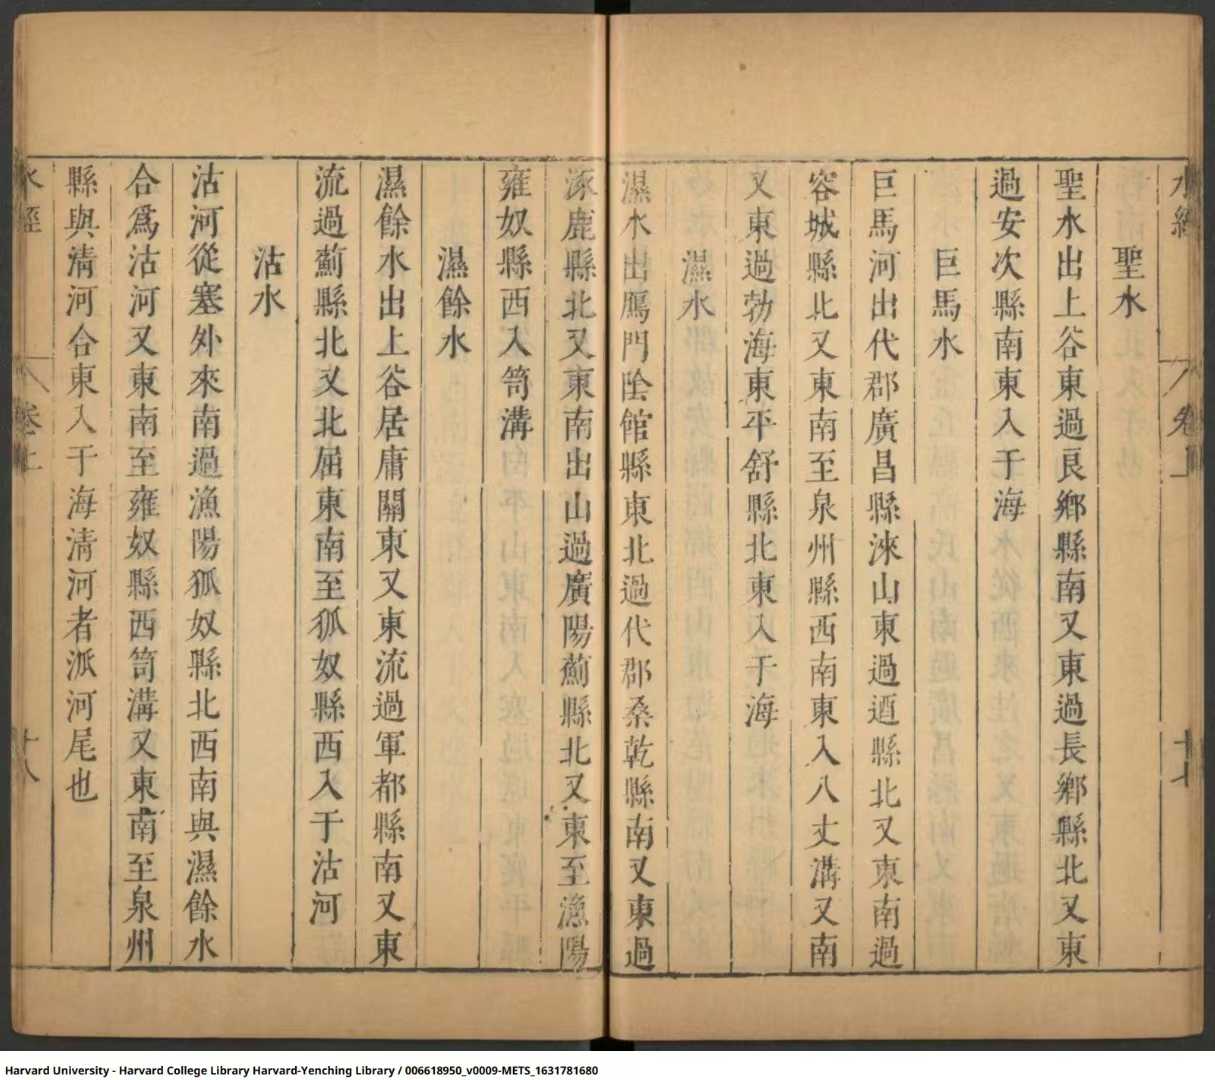 水經
卷上
十七
聖水
聖水出上谷東過良鄉縣南又東過長鄉縣北又東
過安次縣南東入于海
巨馬水
巨馬河出代郡廣昌縣淶山東過遒縣北又東南過
容城縣北又東南至泉州縣西南東入八丈溝又南
又東過勃海東平舒縣北東入于海
濕水
濕水出鴈門陰館縣東北過代郡桑乾縣南又東過
涿鹿縣北又東南出山過廣陽薊縣北又東至漁陽
雍奴縣西入笥溝
濕餘水
濕餘水出上谷居庸關東又東流過軍都縣南又東
流過薊縣北又北屈東南至狐奴縣西入于沽河
沽水
沽河從塞外來南過漁陽狐奴縣北西南與濕餘水
合爲沽河又東南至雍奴縣西笥溝又東南至泉州
縣與清河合東入于海清河者派河尾也
水經
卷上
十八
Harvard University - Harvard College Library Harvard-Yenching Library / 006618950_v0009-METS_1631781680